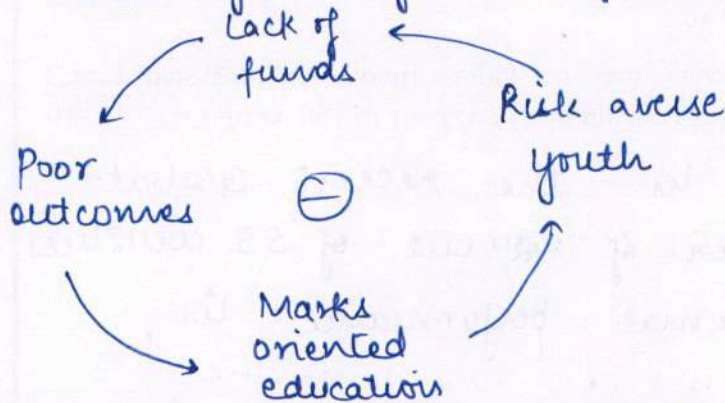 Lack of
funds
Risk averse
youth
Poor
outcomes
⊖
Marks
oriented
education